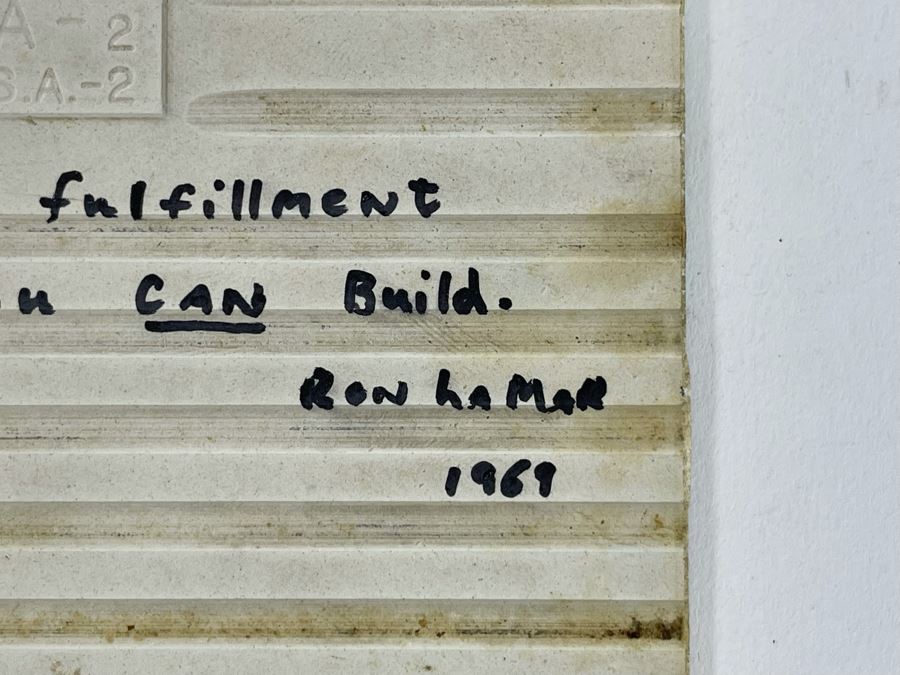 A-2
S.A.-2
fulfillment
u CAN Build.
RON LaMaR
1969